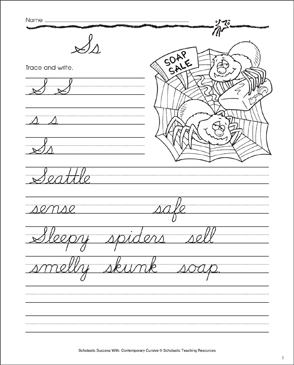 Name
Ss
SOAP
SALE
Trace and write.
S S
s s
Ss
Seattle
sense safe
Sleepy spiders sell
smelly skunk soap.
Scholastic Success With: Contemporary Cursive © Scholastic Teaching Resources